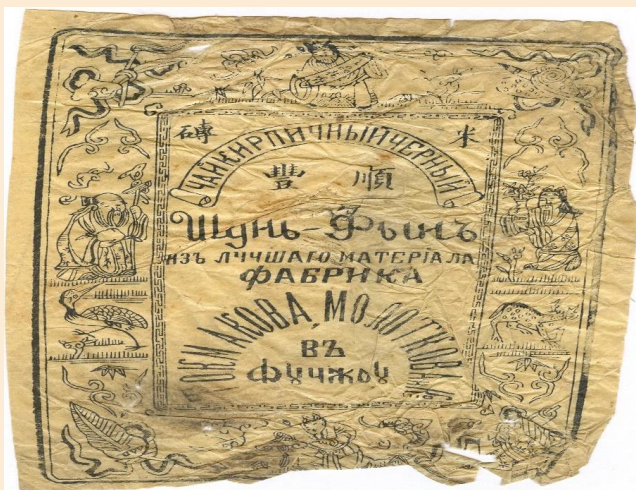 米 磚
ЧАЙ КИРПИЧНЫЙ ЧЕРНЫЙ
順 豐
Шунь-Фынъ
ИЗЪ ЛУЧШАГО МАТЕРІАЛА
ФАБРИКА
ТОКМАКОВА, МОЛОТКОВА
ВЪ
Фучжоу